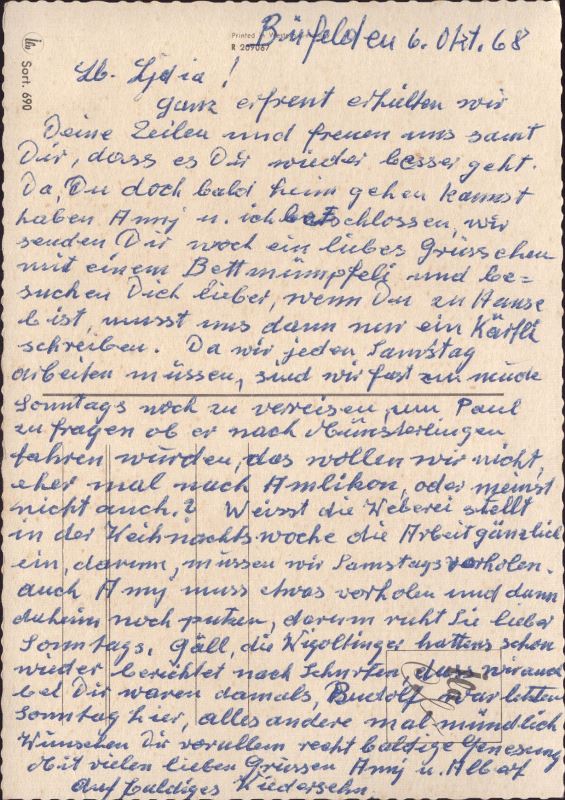 Printed in
R 209067
Sort. 690
Büfelden 6. Okt. 68
Lb. Lydia!
Ganz erfreut erhielten wir
Deine Zeilen und freuen uns samt
Dir, dass es Dir wieder besser geht.
Da, Du doch bald heim gehen kannst
haben Amy u. ich beschlossen, wir
senden Dir noch ein liebes Grüsschen
mit einem Bettmümpfeli und be-
suchen Dich lieber, wenn Du zu Hause
bist, musst uns dann nur ein Kärtli
schreiben. Da wir jeden Samstag
arbeiten müssen, sind wir fast zu müde
Sonntags noch zu verreisen, um Paul
zu fragen ob er nach Münsterlingen
fahren würden, das wollen wir nicht,
eher mal nach Amlikon, oder meinst
nicht auch? Weisst die Weberei stellt
in der Weihnachtswoche die Arbeit gänzlich
ein, darum, müssen wir Samstags vorholen.
auch Amy muss etwas vorholen und dann
daheim noch putzen, darum ruht Sie lieber
Sonntags. Gäll, die Wigoltinger hattens schon
wieder berichtet nach dass wir auch
bei Dir waren damals, Rudolf war letzten
Sonntag hier, alles andere mal mündlich
Wünschen Dir vorallem recht baldige Genesung
Mit vielen lieben Grüssen Amy u. Albert
Auf baldiges Wiedersehn.